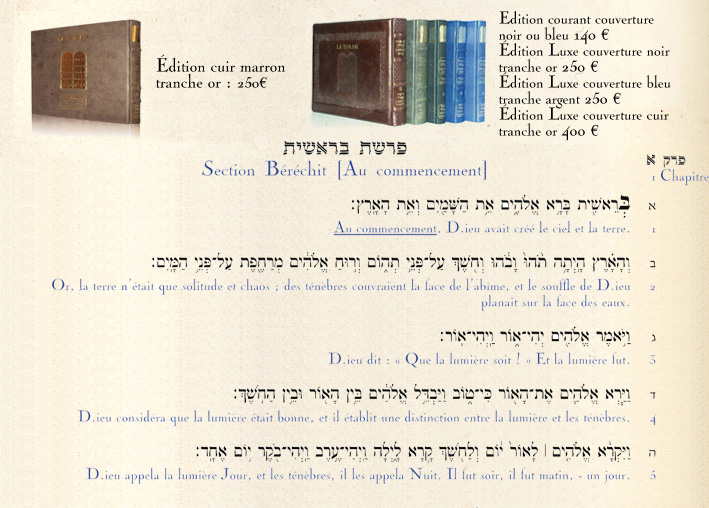 Édition cuir marron
tranche or : 250€
Edition courant couverture
noir ou bleu 140 €
Édition Luxe couverture noir
tranche or 250 €
Édition Luxe couverture bleu
tranche argent 250 €
Édition Luxe couverture cuir
tranche or 400 €
LA TORAH
פרשת בראשית
Section Béréchit [Au commencement]
פרק א
1 Chapitre
א בְּרֵאשִׁ֖ית בָּרָ֣א אֱלֹהִ֑ים אֵ֥ת הַשָּׁמַ֖יִם וְאֵ֥ת הָאָֽרֶץ׃
Au commencement, D.ieu avait créé le ciel et la terre. 1
ב וְהָאָ֗רֶץ הָיְתָ֥ה תֹ֙הוּ֙ וָבֹ֔הוּ וְחֹ֖שֶׁךְ עַל־פְּנֵ֣י תְה֑וֹם וְר֣וּחַ אֱלֹהִ֔ים מְרַחֶ֖פֶת עַל־פְּנֵ֥י הַמָּֽיִם׃
Or, la terre n'était que solitude et chaos ; des ténèbres couvraient la face de l'abîme, et le souffle de D.ieu 2
planait sur la face des eaux.
ג וַיֹּ֥אמֶר אֱלֹהִ֖ים יְהִי־א֑וֹר וַֽיְהִי־אֽוֹר׃
D.ieu dit : « Que la lumière soit ! » Et la lumière fut. 3
ד וַיַּ֧רְא אֱלֹהִ֛ים אֶת־הָא֖וֹר כִּי־ט֑וֹב וַיַּבְדֵּ֣ל אֱלֹהִ֔ים בֵּ֥ין הָא֖וֹר וּבֵ֥ין הַחֹֽשֶׁךְ׃
D.ieu considéra que la lumière était bonne, et il établit une distinction entre la lumière et les ténèbres. 4
ה וַיִּקְרָ֨א אֱלֹהִ֤ים ׀ לָאוֹר֙ י֔וֹם וְלַחֹ֖שֶׁךְ קָ֣רָא לָ֑יְלָה וַֽיְהִי־עֶ֥רֶב וַֽיְהִי־בֹ֖קֶר י֥וֹם אֶחָֽד׃
D.ieu appela la lumière Jour, et les ténèbres, il les appela Nuit. Il fut soir, il fut matin, - un jour. 5